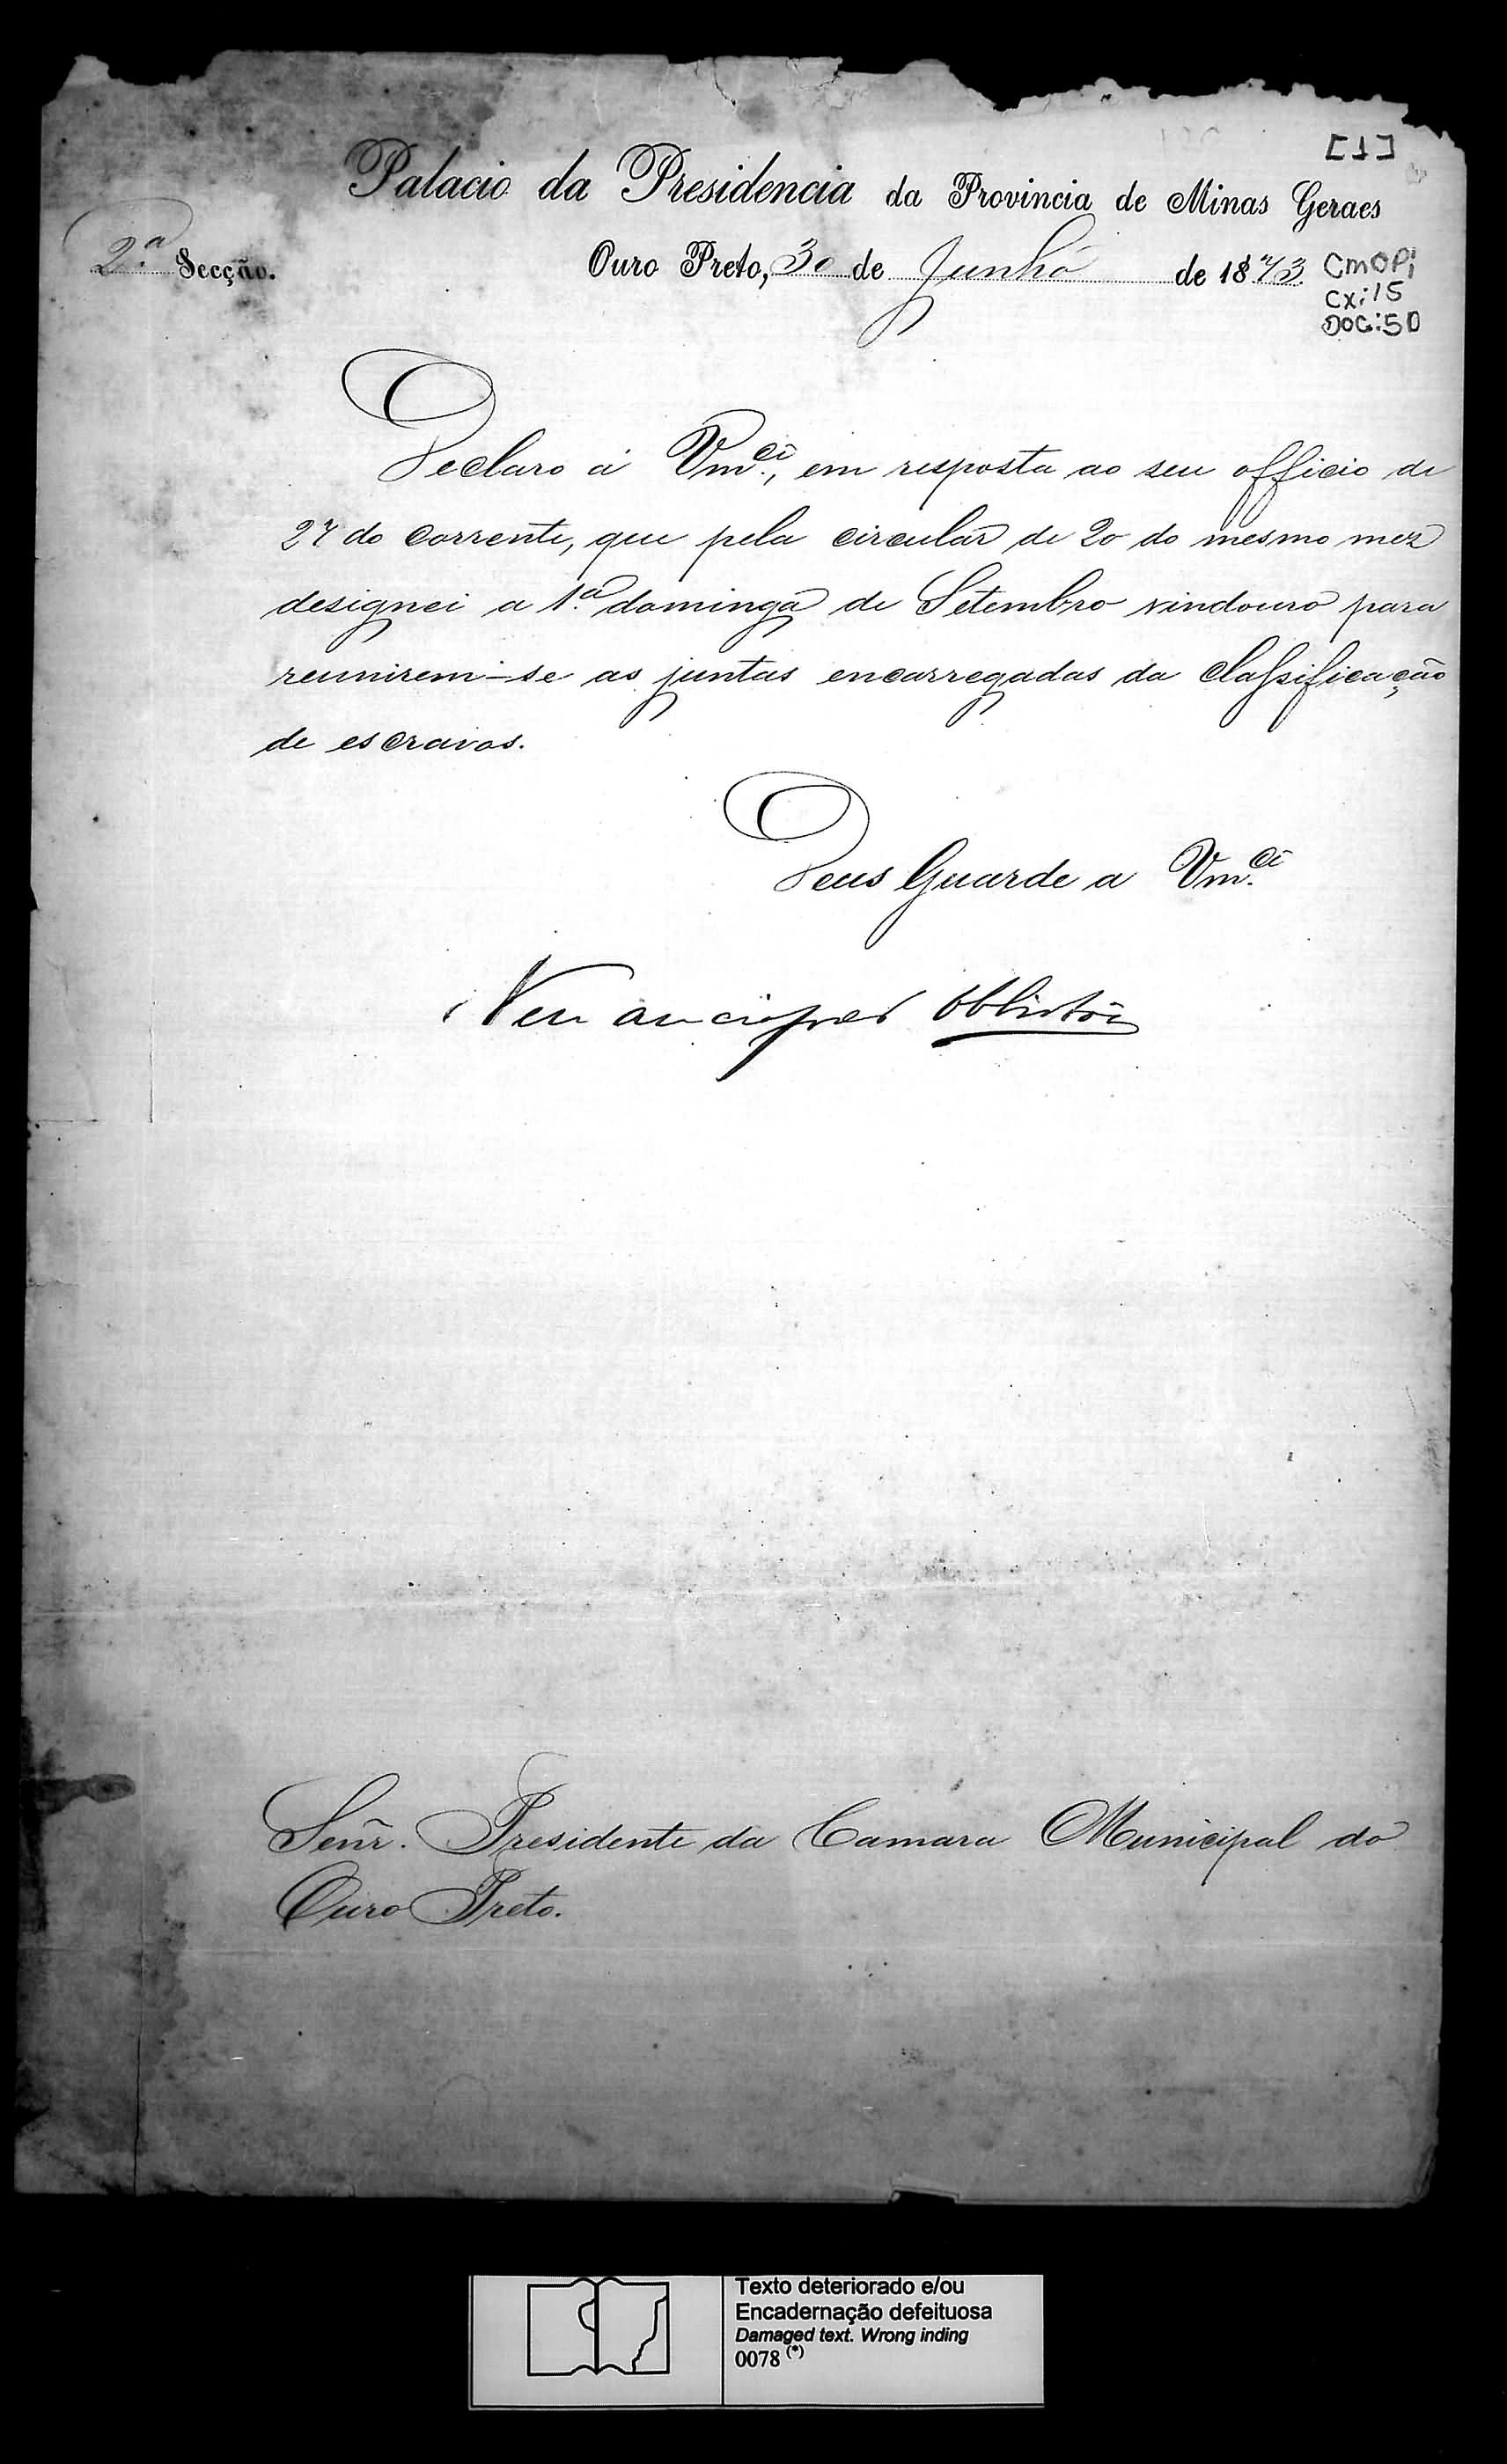 [1]
Palacio da Presidencia da Provincia de Minas Geraes
2.ª Secção.
Ouro Preto, 30 de Junho de 1873
CMOP
Cx: 15
DOC: 50
Declaro á Vm.ce, em resposta ao seu officio de
27 do corrente, que pela circular de 20 do mesmo mez
designei a 1.ª dominga de Setembro vindouro para
reunirem-se as juntas encarregadas da classificação
de escravos.
Deus Guarde a Vm.ce
Señr. Presidente da Camara Municipal do
Ouro Preto.
Texto deteriorado e/ou
Encadernação defeituosa
Damaged text. Wrong inding
0078 (*)